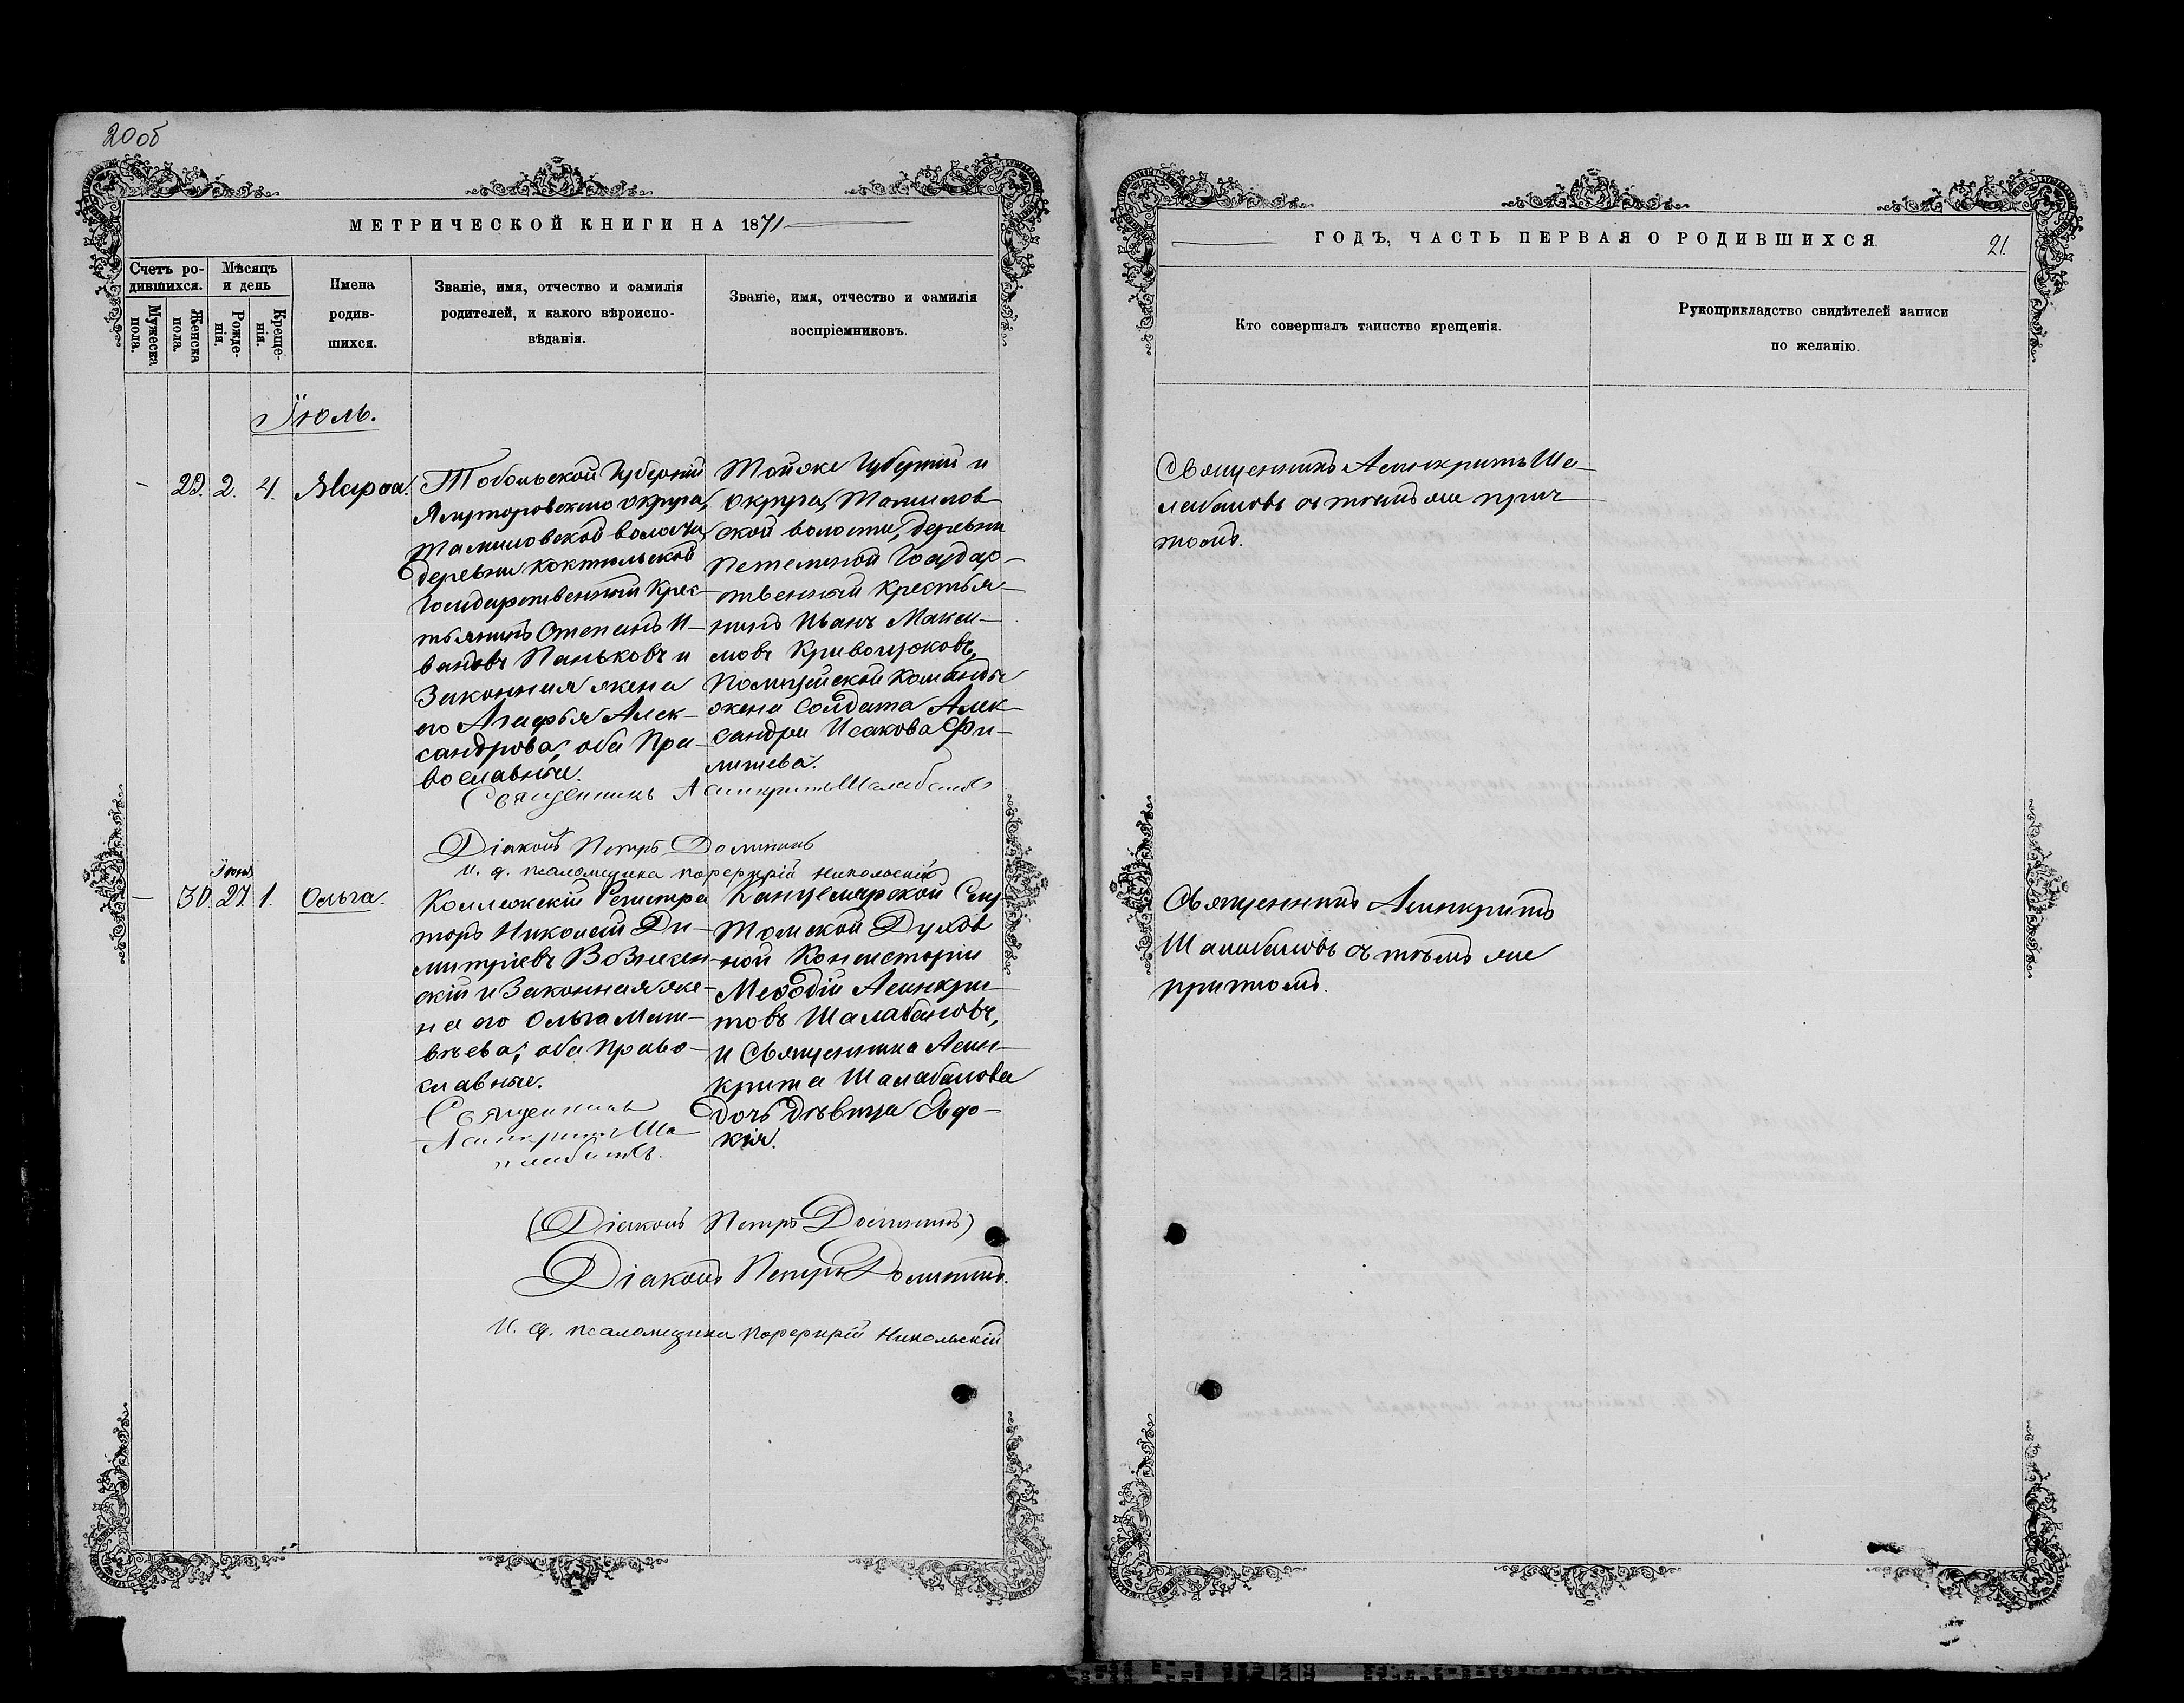 20 об
МЕТРИЧЕСКОЙ КНИГИ НА 1871
Счетъ ро-
дившихся.
Мѣсяцъ
и день
Мужеска
пола.
Женска
пола.
Рожде-
нія.
Креще-
нія.
Имена
родив-
шихся.
Званіе, имя, отчество и фамилія
родителей, и какого вѣроиспо-
вѣданія.
Званіе, имя, отчество и фамилія
воспріемниковъ.
Іюль.
29. 2. 4. Марѳа.
Тобольской Губерніи
Ялуторовскаго округа,
деревни
Государственный Крес-
тьянинъ Степанъ И-
вановъ Паньковъ и
Законная жена
его Агафья Алек-
сандрова; оба Пра-
вославные.
Томской Губерніи и
округа,
ской волости, деревни
Петешной Государ-
ственный Крестья-
нинъ Иванъ Макси-
мовъ Кривошеевъ,
Полицейской Команды
жена Солдата Алек-
сандра Исакова Фи-
Священникъ Асинкритъ Шалабановъ
Діаконъ Петръ
И. д. псаломщика Порфирій Никольскій
Іюня
30. 27. 1. Ольга.
Коллежскій Регистра
торъ Николай Ди-
митріевъ Вознесен-
скій и Законная же-
на его Ольга Мат-
вѣева; оба Право-
славные.
Священникъ
Асинкритъ Ша-
лабановъ.
Канцелярской Слу-
Томской Духов
ной Консисторіи
Меѳодій Асинкри-
товъ Шалабановъ,
и Священника Асин-
крита Шалабанова
дочь дѣвица Евдо-
кія.
(Діаконъ Петръ)
Діаконъ Петръ
И. д. псаломщика Порфирій Никольскій
ГОДЪ, ЧАСТЬ ПЕРВАЯ О РОДИВШИХСЯ.
21.
Кто совершалъ таинство крещенія.
Рукоприкладство свидѣтелей записи
по желанію.
Священникъ Асинкритъ Ша-
лабановъ съ тѣмъ же прич-
томъ.
Священникъ Асинкритъ
Шалабановъ съ тѣмъ же
притомъ.